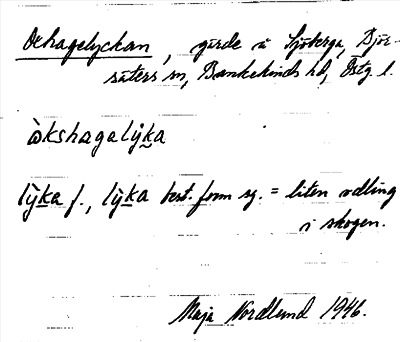 Oxhagelyckan, gärde å Sjöberga, Björ-
säters sn, Bankekinds hd, Östg. l.
òkshagalýka
lỳka f., lỳka best. form sg. = liten odling
i skogen.
Maja Nordlund 1946.